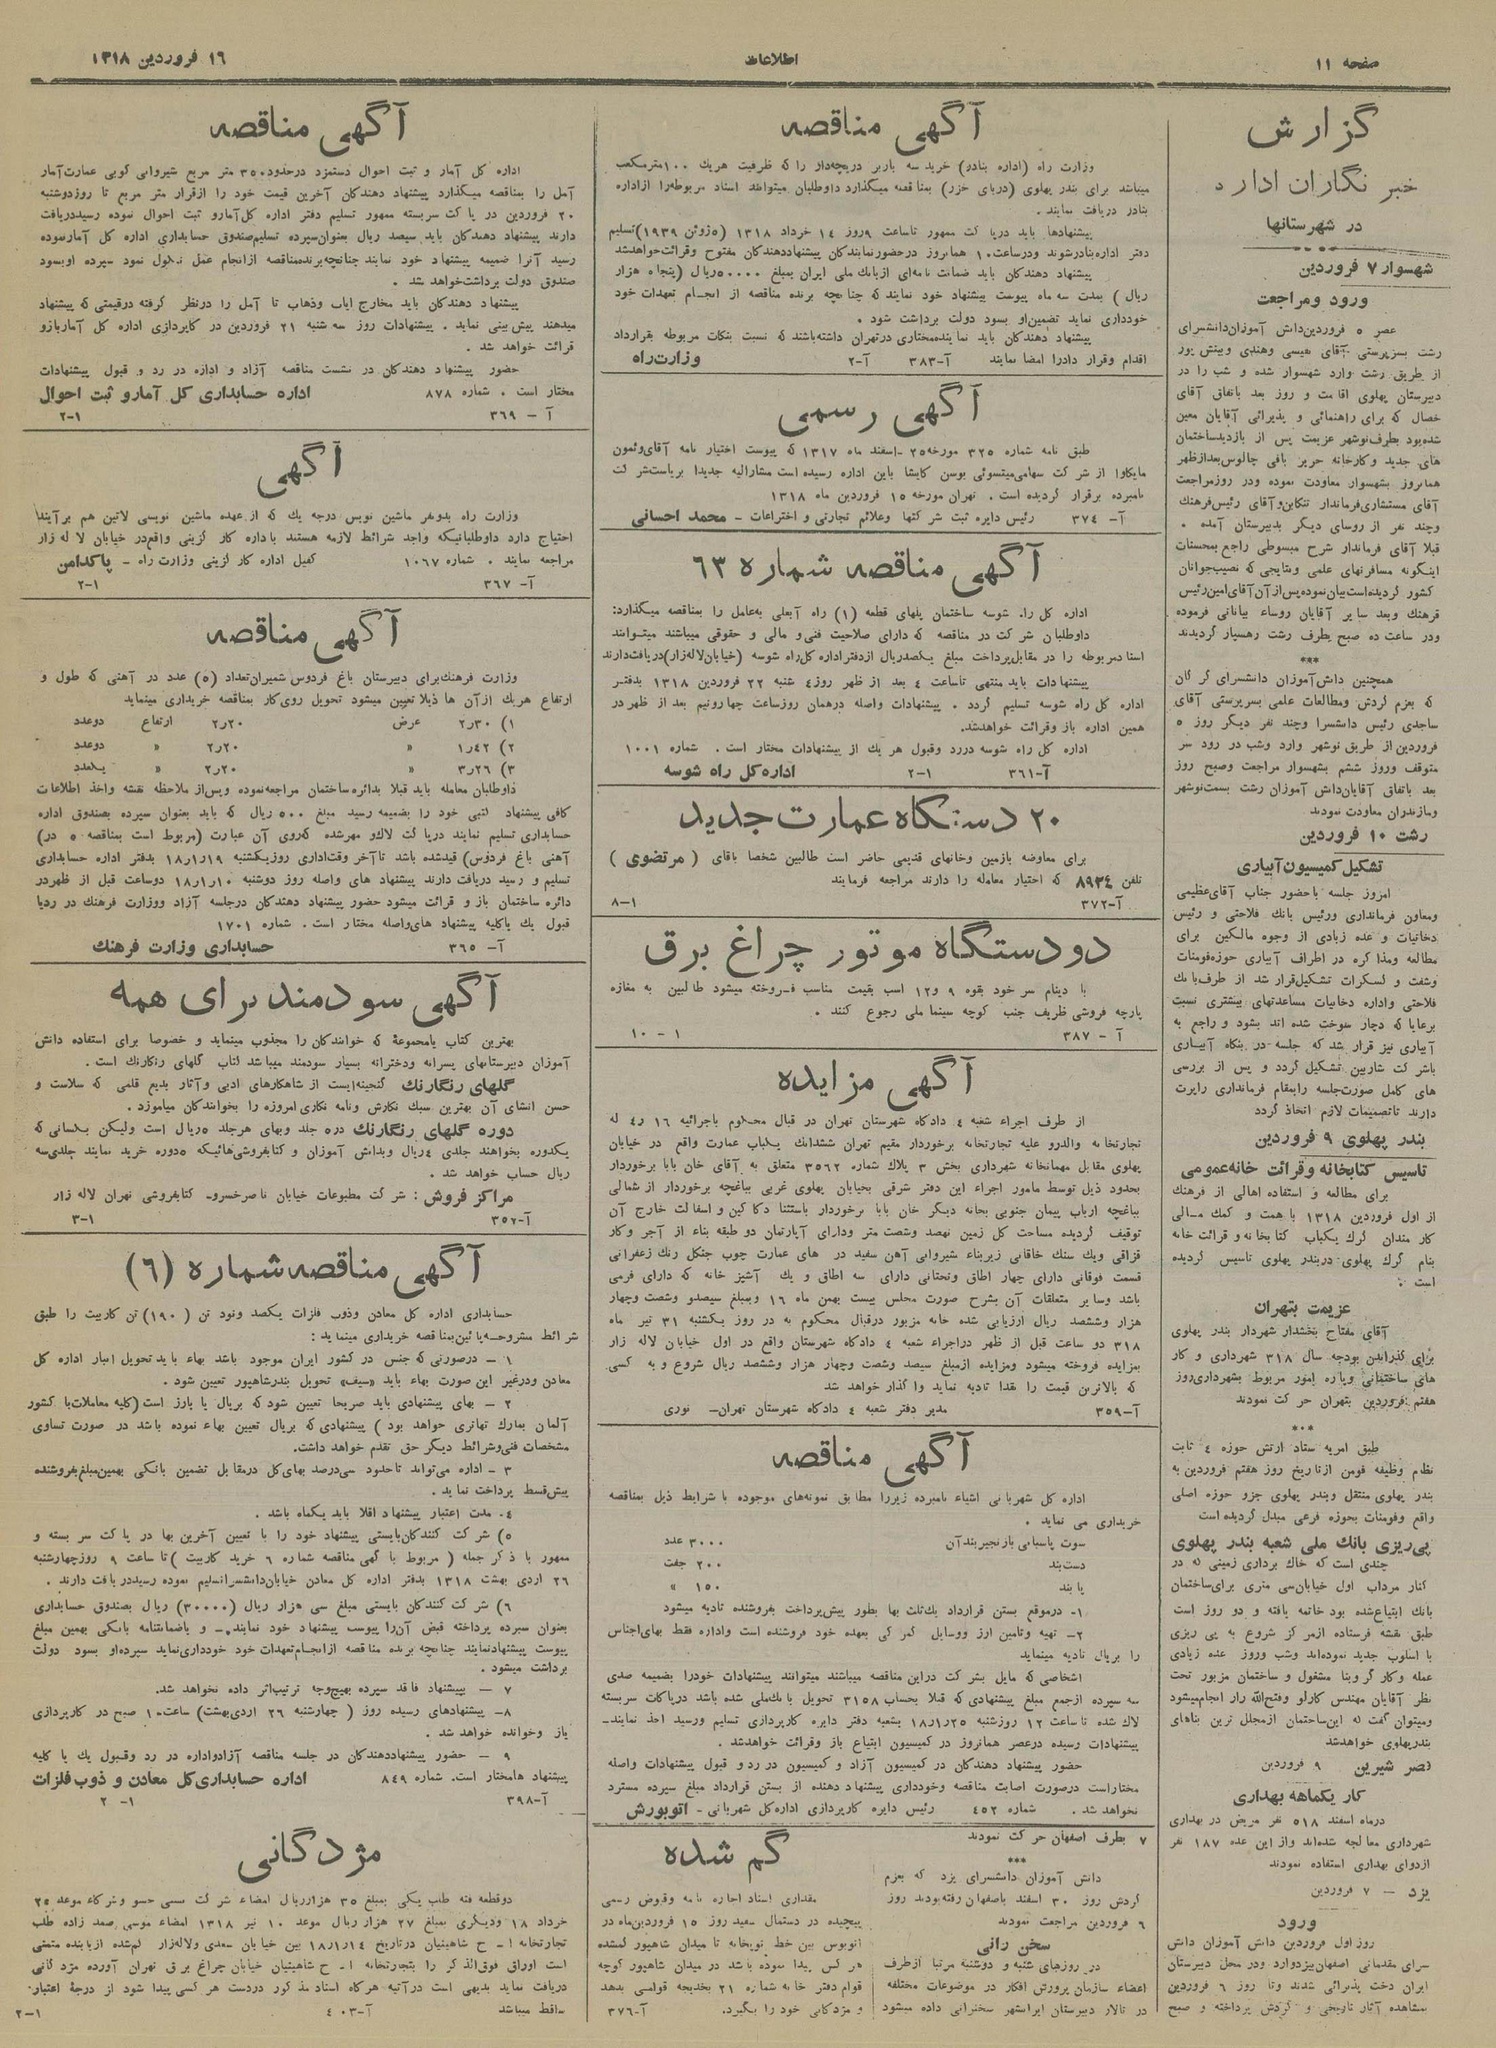 صفحه ۱۱
اطلاعات
۱۶ فروردین ۱۳۱۸
گزارش
خبر نگاران اداره
در شهرستانها
شهسوار ۷ فروردین
ورود ومراجعت
عصر ۵ فروردین‌دانش آموزان‌دانشسرای
رشت بسرپرستی آقای عیسی وهندی وبینش پور
از طریق رشت وارد شهسوار شده و شب را در
دبیرستان پهلوی اقامت و روز بعد باتفاق آقای
خصال که برای راهنمائی و پذیرائی آقایان معین
شده‌بود بطرف‌نوشهر عزیمت پس از بازدیدساختمان
های جدید وکارخانه حریر بافی چالوس‌بعدازظهر
همانروز بشهسوار معاودت نموده ودر روزمراجعت
آقای مستشاری‌فرماندار تنکابن‌وآقای رئیس‌فرهنک
وچند نفر از روسای دیگر بدبیرستان آمده .
قبلا آقای فرماندار شرح مبسوطی راجع بمحسنات
اینگونه مسافرتهای علمی ونتایجی که نصیب‌جوانان
کشور گردیده‌است‌بیان‌نموده‌پس‌از آن‌آقای‌امین‌رئیس
فرهنك وبعد سایر آقایان روساء بیاناتی فرموده
ودر ساعت ده صبح بطرف رشت رهسپار گردیدند
***
همچنین دانش‌آموزان دانشسرای گرگان
که بعزم گردش ومطالعات علمی بسرپرستی آقای
ساجدی رئیس دانشسرا وچند نفر دیگر روز ۵
فروردین‌از طریق نوشهر وارد وشب در رود سر
متوقف وروز ششم بشهسوار مراجعت وصبح روز
بعد باتفاق آقایان‌دانش آموزان رشت بسمت‌نوشهر
ومازندران معاودت نمودند
رشت ۱۰ فروردین
تشکیل کمیسیون‌آبیاری
امروز جلسه باحضور جناب آقای‌عظیمی
ومعاون فرمانداری ورئیس بانك فلاحتی و رئیس
دخانیات و عده زیادی از وجوه مالکین برای
مطالعه ومذاکره در اطراف آبیاری حوزه‌فومنات
وشفت و لسکرات تشکیل‌قرار شد از طرف‌بانك
فلاحتی واداره دخانیات مساعدتهای بیشتری نسبت
برعایا که دچار سوخت شده اند بشود و راجع به
آبیاری نیز قرار شد که جلسه در بنگاه آبیاری
باشرکت شاربین تشکیل گردد و پس از بررسی
های کامل صورت‌جلسه رابمقام فرمانداری راپرت
دارند تاتصمیمات لازم اتخاذ گردد
بندر پهلوی ۹ فروردین
تاسیس کتابخانه وقرائت خانه‌عمومی
برای مطالعه و استفاده اهالی از فرهنك
از اول فروردین ۱۳۱۸ با همت و کمك مـالی
کارمندان گرك یکباب کتابخانه و قرائت خانه
بنام گرك پهلوی دربندر پهلوی تاسیس گردیده
است .
عزیمت بتهران
آقای مفتاح بخشدار شهردار بندر پهلوی
برای گذراندن بودجه سال ۳۱۸ شهرداری و کار
های ساختمانی وپاره امور مربوط بشهرداری‌روز
هفتم فروردین بتهران حرکت نمودند
***
طبق امریه ستاد ارتش حوزه ٤ ثابت
نظام وظیفه فومن ازتاریخ روز هفتم فروردین به
بندر پهلوی منتقل وبندر پهلوی جزو حوزه اصلی
واقع وفومنات بحوزه فرعی مبدل گردیده است
پی‌ریزی بانك ملی شعبه بندر پهلوی
چندی است که خاك برداری زمینی که در
کنار مرداب اول خیابان‌سی متری برای‌ساختمان
بانك ابتیاع‌شده بود خاتمه یافته و دو روز است
طبق نقشه فرستاده ازمرکز شروع به پی ریزی
با اسلوب جدید نموده‌اند وشب وروز عده زیادی
عمله وکارگر وبنا مشغول و ساختمان مزبور تحت
نظر آقایان مهندس کارلو وفتح‌الله راد انجام‌میشود
ومیتوان گفت که این‌ساختمان ازمجلل ترین بناهای
بندرپهلوی خواهدشد
قصر شیرین ۹ فروردین
کار یکماهه بهداری
درماه اسفند ۵۱۸ نفر مریض در بهداری
شهرداری معالجه شده‌اند واز این عده ۱۸۷ نفر
ازدوای بهداری استفاده نمودند
یزد – ۷ فروردین
ورود
روز اول فروردین دانش آموزان دانش
سرای مقدماتی اصفهان‌بیزدوارد ودر محل دبیرستان
ایران دخت پذیرائی شدند وتا روز ۶ فروردین
بمشاهده آثار تاریخی و گردش پرداخته و صبح
۷ بطرف اصفهان حرکت نمودند
***
دانش آموزان دانشسرای یزد که بعزم
گردش روز ۳۰ اسفند باصفهان رفته‌بودند روز
۶ فروردین مراجعت نمودند
سخن رانی
در روزهای شنبه و دوشنبه مرتبا ازطرف
اعضاء سازمان پرورش افکار در موضوعات مختلفه
در تالار دبیرستان ایرانشهر سخنرانی داده میشود
آگهی مناقصه
وزارت راه (اداره بنادر) خرید سه باربر دریچه‌دار را که ظرفیت هریك ۱۰۰مترمکعب
میباشد برای بندر پهلوی (دریای خزر) بمناقصه میگذارد داوطلبان میتوانند اسناد مربوطه‌را ازاداره
بنادر دریافت نمایند .
پیشنهادها باید درپاکت ممهور تاساعت ۹روز ۱٤ خرداد ۱۳۱۸ (۵ژوئن ۱۹۳۹)تسلیم
دفتر اداره‌بنادرشوند ودرساعت۱۰ همانروز درحضورنمایندگان پیشنهاددهندگان مفتوح وقرائت‌خواهدشد
پیشنهاد دهندگان باید ضمانت نامه‌ای ازبانك ملی ایران بمبلغ ۵۰۰۰۰ریال (پنجاه هزار
ریال) بمدت سه‌ماه پیوست پیشنهاد خود نمایند که چنانچه برنده مناقصه از انجام تعهدات خود
خودداری نماید تضمین‌او بسود دولت برداشت شود .
پیشنهاد دهندگان باید نماینده‌مختاری درتهران داشته‌باشند که نسبت بنکات مربوطه بقرارداد
اقدام وقرار دادرا امضا نمایند آ–۳۸۳ آ–۲ وزارت‌راه
آگهی رسمی
طبق نامه شماره ۳۲۵ مورخه۲۵ –اسفند ماه ۱۳۱۷ که پیوست اختیار نامه آقای‌وئمون
مایکاوا از شرکت سهامی‌میتسوئی بوسن کایشا باین اداره رسیده است مشارالیه جدیدا بریاست‌شرکت
نامبرده برقرار گردیده است . تهران مورخه ۱۵ فروردین ماه ۱۳۱۸
آ– ۳۷٤ رئیس دایره ثبت شرکتها وعلائم تجارتی و اختراعات – محمد احسانی
آگهی مناقصه شماره ۶۳
اداره کل راه شوسه ساختمان پلهای قطعه (۱) راه آبعلی به‌عامل را بمناقصه میگذارد:
داوطلبان شرکت در مناقصه که دارای صلاحیت فنی و مالی و حقوقی میباشند میتوانند
اسنادمربوطه را در مقابل‌پرداخت مبلغ یکصدریال ازدفتراداره کل‌راه شوسه (خیابان‌لاله‌زار)دریافت‌دارند
پیشنهادات باید منتهی تاساعت ٤ بعد از ظهر روز٤ شنبه ۲۲ فروردین ۱۳۱۸ بدفتر
اداره کل راه شوسه تسلیم گردد . پیشنهادات واصله درهمان روزساعت چهارونیم بعد از ظهر در
همین اداره باز وقرائت خواهدشد.
اداره کل راه شوسه دررد وقبول هر یك از پیشنهادات مختار است . شماره ۱۰۰۱
آ–۳۶۱ ۲–۱ اداره‌کل راه شوسه
۲۰ دستگاه عمارت جدید
برای معاوضه بازمین وخانهای قدیمی حاضر است طالبین شخصا باقای (مرتضوی)
تلفن ۸۹۳٤ که اختیار معامله را دارند مراجعه فرمایند
آ–۳۷۲ ۸–۱
دودستگاه موتور چراغ برق
با دینام سر خود بقوه ۹ و۱۲ اسب بقیمت مناسب فروخته میشود طالبین به مغازه
پارچه فروشی ظریف جنب کوچه سینما ملی رجوع کنند .
آ – ۳۸۷ ۱ – ۱۰
آگهی مزایده
از طرف اجراء شعبه ٤ دادگاه شهرستان تهران در قبال محکوم باجرائیه ۱۶ ر٤ له
تجارتخانه والدرو علیه تجارتخانه برخوردار مقیم تهران ششدانك یکباب عمارت واقع در خیابان
پهلوی مقابل مهمانخانه شهرداری بخش ۳ پلاك شماره ۳۵۶۲ متعلق به آقای خان بابا برخوردار
بحدود ذیل توسط مامور اجراء این دفتر شرقی بخیابان پهلوی غربی بباغچه برخوردار از شمالی
بباغچه ارباب پیمان جنوبی بخانه دیگر خان بابا برخوردار باستثنا دکاکین و اسفالت خارج آن
توقیف گردیده مساحت کل زمین نهصد وشصت متر ودارای آپارتمان دو طبقه بناء از آجر وکار
قزاقی ویك سنك خاقانی زیربناء شیروانی آهن سفید در های عمارت چوب جنگل رنك زعفرانی
قسمت فوقانی دارای چهار اطاق وتحتانی دارای سه اطاق و یك آشپز خانه که دارای فرمی
باشد وسایر متعلقات آن بشرح صورت مجلس بیست بهمن ماه ۱۶ وبمبلغ سیصدو وشصت وچهار
هزار وششصد ریال ارزیابی شده خانه مزبور درقبال محکوم به در روز یکشنبه ۳۱ تیر ماه
۳۱۸ دو ساعت قبل از ظهر دراجراء شعبه ٤ دادگاه شهرستان واقع در اول خیابان لاله زار
بمزایده فروخته میشود ومزایده ازمبلغ سیصد وشصت وچهار هزار وششصد ریال شروع و به کسی
که بالاترین قیمت را نقدا تادیه نماید واگذار خواهد شد
آ–۳۵۹ مدیر دفتر شعبه ٤ دادگاه شهرستان تهران– نوری
آگهی مناقصه
اداره کل شهربانی اشیاء نامبرده زیررا مطابق نمونه‌های موجوده با شرایط ذیل بمناقصه
خریداری می نماید .
سوت پاسبانی بازنجیربندآن ۳۰۰۰ عدد
دست‌بند ۲۰۰ جفت
پابند ۱۵۰ »
۱– درموقع بستن قرارداد یك‌ثلث بها بطور پیش‌پرداخت بفروشنده تادیه میشود
۲– تهیه وتامین ارز ووسایل گمرکی بعهده خود فروشنده است واداره فقط بهای‌اجناس
را بریال تادیه مینماید
اشخاصی که مایل بشرکت دراین مناقصه میباشند میتوانند پیشنهادات خودرا بضمیمه صدی
سه سپرده ازجمع مبلغ پیشنهادی که قبلا بحساب ۳۱۵۸ تحویل بانك‌ملی شده باشد درپاکات سربسته
لاك شده تا ساعت ۱۲ روزشنبه ۱۸ر۱ر۲۵ بشعبه دفتر دایره کارپردازی تسلیم ورسید اخذ نمایند–
پیشنهادات رسیده درعصر همانروز در کمیسیون ابتیاع باز وقرائت خواهدشد.
حضور پیشنهاد دهندگان در کمیسیون آزاد و کمیسیون در رد و قبول پیشنهادات واصله
مختاراست درصورت اصابت مناقصه وخودداری پیشنهاد دهنده از بستن قرارداد مبلغ سپرده مسترد
نخواهد شد . شماره ٤۵۲ رئیس دایره کارپردازی اداره‌کل شهربانی – اتوبورش
گم شده
مقداری اسناد اجاره نامه وقبوض رسمی
پیچیده در دستمال سفید روز ۱۵ فروردین‌ماه در
اتوبوس بین خط توپخانه تا میدان شاهپور گمشده
هرکس پیدا نموده باشد در میدان شاهپور کوچه
قوام دفتر خانه شماره ۲۱ بخدیجه قوامی بدهد
و مژدگانی خود را بگیرد. آ–۳۷۶
آگهی مناقصه
اداره کل آمار و ثبت احوال دستمزد درحدود۳۵۰ متر مربع شیروانی کوبی عمارت‌آمار
آمل را بمناقصه میگذارد پیشنهاد دهندگان آخرین قیمت خود را ازقرار متر مربع تا روزدوشنبه
۲۰ فروردین در پاکت سربسته ممهور تسلیم دفتر اداره کل‌آمارو ثبت احوال نموده رسیددریافت
دارند پیشنهاد دهندگان باید سیصد ریال بعنوان‌سپرده تسلیم‌صندوق حسابداری اداره کل آمارنموده
رسید آنرا ضمیمه پیشنهاد خود نمایند چنانچه‌برنده‌مناقصه ازانجام عمل نکول نمود سپرده اوبسود
صندوق دولت برداشت‌خواهد شد .
پیشنهاد دهندگان باید مخارج ایاب وذهاب تا آمل را درنظر گرفته درقیمتی که پیشنهاد
میدهند پیش‌بینی نماید . پیشنهادات روز سه‌شنبه ۲۱ فروردین در کارپردازی اداره کل آماربازو
قرائت خواهد شد .
حضور پیشنهاد دهندگان در نشست مناقصه آزاد و اداره در رد و قبول پیشنهادات
مختار است . شماره ۸۷۸ اداره حسابداری کل آمارو ثبت احوال
آ – ۳۶۹ ۲–۱
آگهی
وزارت راه بدونفر ماشین نویس درجه یك که از عهده ماشین نویسی لاتین هم برآیند
احتیاج دارد داوطلبانیکه واجد شرائط لازمه هستند باداره کارگزینی واقع‌در خیابان لاله‌زار
مراجعه نمایند . شماره ۱۰۶۷ کفیل اداره کارگزینی وزارت راه – پاکدامن
آ– ۳۶۷ ۲–۱
آگهی مناقصه
وزارت فرهنك‌برای دبیرستان باغ فردوس شمیران‌تعداد (۵) عدد در آهنی که طول و
ارتفاع هریك ازآن ها ذیلا تعیین میشود تحویل روی‌کار بمناقصه خریداری مینماید
۱) ۲٫۳۰ عرض ۲٫۲۰ ارتفاع دوعدد
۲) ۱٫٤۲ » ۲٫۲۰ » دوعدد
۳) ۳٫۲۶ » ۲٫۲۰ » یکعدد
داوطلبان معامله باید قبلا بدائره‌ساختمان مراجعه‌نموده وپس‌از ملاحظه نقشه واخذ اطلاعات
کافی پیشنهاد کتبی خود را بضمیمه رسید مبلغ ۵۰۰ ریال که باید بعنوان سپرده بصندوق اداره
حسابداری تسلیم نمایند درپاکت لاك‌و مهرشده که‌روی آن عبارت (مربوط است بمناقصه ۵ در)
آهنی باغ فردوس) قیدشده باشد تاآخر وقت‌اداری روزیکشنبه ۱۸ر۱ر۱۹ بدفتر اداره حسابداری
تسلیم و رسید دریافت دارند پیشنهاد های واصله روز دوشنبه ۱۸ر۱ر۱۰ دوساعت قبل از ظهردر
دائره ساختمان باز و قرائت میشود حضور پیشنهاد دهندگان درجلسه آزاد ووزارت فرهنك در ردیا
قبول یك یاکلیه پیشنهاد های‌واصله مختار است . شماره ۱۷۰۱
آ– ۳۶۵ حسابداری وزارت فرهنك
آگهی سودمند برای همه
بهترین کتاب یامجموعهٔ که خوانندگان را مجذوب مینماید و خصوصا برای استفاده دانش
آموزان دبیرستانهای پسرانه ودخترانه بسیار سودمند میباشد کتاب گلهای رنگارنك است .
گلهای رنگارنك گنجینه‌ایست از شاهکارهای ادبی وآثار بدیع قلمی که سلاست و
حسن انشای آن بهترین سبك نگارش ونامه نگاری‌امروزه را بخوانندگان میاموزد .
دوره گلهای رنگارنك درده جلد وبهای هرجلد ۵ریال است ولیکن بکسانی که
یکدوره بخواهند جلدی ٤ریال وبدانش آموزان و کتابفروشی‌هائیکه ۵دوره خرید نمایند جلدی‌سه
ریال حساب خواهد شد .
مراکز فروش : شرکت مطبوعات خیابان ناصرخسرو– کتابفروشی تهران لاله زار
آ–۳۵۲ ۳–۱
آگهی مناقصه‌شماره (۶)
حسابداری اداره کل معادن وذوب فلزات یکصد ونود تن (۱۹۰) تن کاربیت را طبق
شرائط مشروحه‌پائین‌بمناقصه خریداری مینماید :
۱ – درصورتی‌که جنس در کشور ایران موجود باشد بهاء باید تحویل انبار اداره کل
معادن ودرغیر این صورت بهاء باید «سیف» تحویل بندرشاهپور تعیین شود .
۲ – بهای پیشنهادی باید صریحا تعیین شود که بریال یا بارز است (کلیه معاملات‌با کشور
آلمان بمارك تهاتری خواهد بود) پیشنهادی که بریال تعیین بهاء نموده باشد در صورت تساوی
مشخصات فنی‌وشرائط دیگر حق تقدم خواهد داشت.
۳ – اداره می‌تواند تاحدود سی‌درصد بهای‌کل درمقابل تضمین بانکی بهمین‌مبلغ‌بفروشنده
پیش‌قسط پرداخت نماید .
٤– مدت اعتبار پیشنهاد اقلا باید یکماه باشد .
۵) شرکت کنندگان‌بایستی پیشنهاد خود را با تعیین آخرین بها در پاکت سر بسته و
ممهور با ذکر جمله (مربوط با گهی مناقصه شماره ۶ خرید کاربیت) تا ساعت ۹ روزچهارشنبه
۲۶ اردی بهشت ۱۳۱۸ بدفتر اداره کل معادن خیابان‌دانشسراتسلیم نموده رسیددریافت دارند .
۶) شرکت کنندگان بایستی مبلغ سی هزار ریال (۳۰۰۰۰) ریال بصندوق حسابداری
بعنوان سپرده پرداخته قبض آن‌را پیوست پیشنهاد خود نمایند– و یاضمانتنامه بانکی بهمین مبلغ
پیوست پیشنهادنمایند چنانچه برنده مناقصه ازانجام‌تعهدات خود خودداری‌نماید سپرده‌او بسود دولت
برداشت میشود .
۷ – بپیشنهاد فاقد سپرده بهیچ‌وجه ترتیب‌اثر داده نخواهد شد.
۸– پیشنهادهای رسیده روز (چهارشنبه ۲۶ اردی‌بهشت) ساعت۱۰ صبح در کارپردازی
باز وخوانده خواهد شد .
۹ – حضور پیشنهاددهندگان در جلسه مناقصه آزادواداره در رد وقبول یك یا کلیه
پیشنهاد هامختار است. شماره ۸٤۹ اداره حسابداری‌کل معادن و ذوب فلزات
آ–۳۹۸ ۱– ۲
مژدگانی
دوقطعه فته طلب یکی بمبلغ ۳۵ هزارریال امضاء شرکت نسبی حسو وشرکاء موعد ۲۵
خرداد ۱۸ ودیگری بمبلغ ۲۷ هزار ریال موعد ۱۰ تیر ۱۳۱۸ امضاء موسی صمد زاده طلب
تجارتخانه ا – ح شاهینیان درتاریخ ۱۸ر۱ر۱٤ بین خیابان سعدی ولاله‌زار گم‌شده ازیابنده متمنی
است اوراق فوق‌الذکر را بتجارتخانه ا – ح شاهینیان خیابان چراغ برق تهران آورده مژدگانی
دریافت نماید بدیهی است درآتیه هرگاه اسناد مذکور دردست هرکسی پیدا شود از درجهٔ اعتبار
ساقط میباشد آ–٤۰۳ ۲–۱